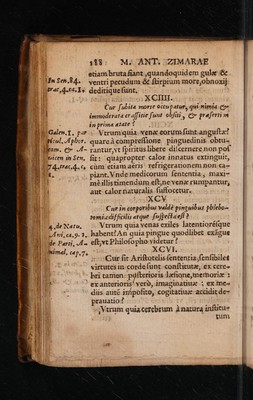 188 M. ANT. ZIMARAE
etiam bruta fiant, quandoquidem gulæ &
ventri pecudum & stirpium more, obnoxij
deditique sunt.
XCIIII.
Cur subita morte occupatur, qui nimia &
immoderata crassitie sunt obsiti, & præsertim
in prima ætate?
Vtrum quia venæ eorum sunt angustæ?
quare à compressione pinguedinis obtu-
rantur, vt spiritus libere discurrere non pos
sit: quapropter calor innatus extinguitur,
cum etiam aëris refrigerationem non ca-
piant. Vnde medicorum sententia, maxi-
mè illis timendum est, ne venæ rumpantur,
aut calor naturalis suffocetur.
XCV
Cur in corporibus valdè pinguibus phlebo-
tomia difficilis atque suspecta est?
Vtrum quia venas exiles latentiorésque
habent? An quia pingue quodlibet exãgue
est, vt Philosopho videtur?
XCVI.
Cur sit Aristotelis sententia, sensibiles
virtutes in corde sunt constitutæ, ex cere-
bri tamen posterioris læsione, memoriæ:
ex anterioris verò, imaginatiuæ: ex me-
dius autē imposito, cogitatiuæ accidit de-
prauatio?
Vtrum quia cerebrum à natura institu-
tum
In Sen. 84.
Galen. 1. par
ticul. Aphor.
4. de Natu.
de Parti. A-
nimal. cap. 7.